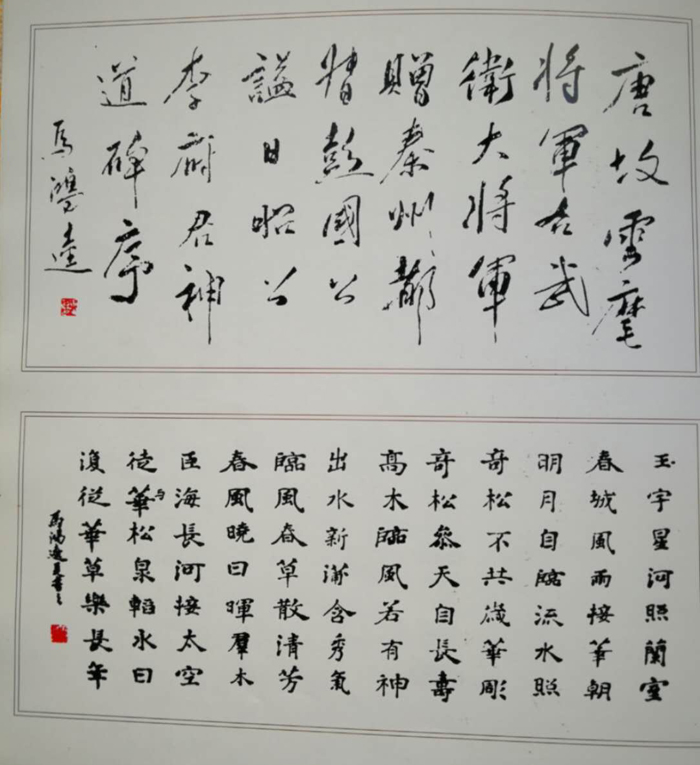 唐故雲麾
将軍右武
衛大将軍
贈秦州都
督彭國公
謚日昭公
李府君神
道碑序
馬鴻逵
玉宇星河照蘭室
春城風雨接華朝
明月自臨流水照
奇松不共歲華彫
奇松參天自長壽
高木臨風若有神
出水新蒲含秀氣
臨風春草散清芳
春風曉日暉羣木
巨海長河接太空
徒華与松泉韜水日
復從華草樂長年
馬鴻逵